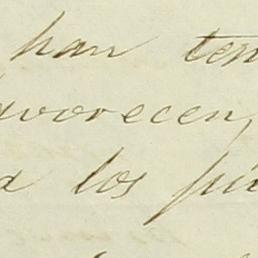 han ten
avorecen,
a los pu